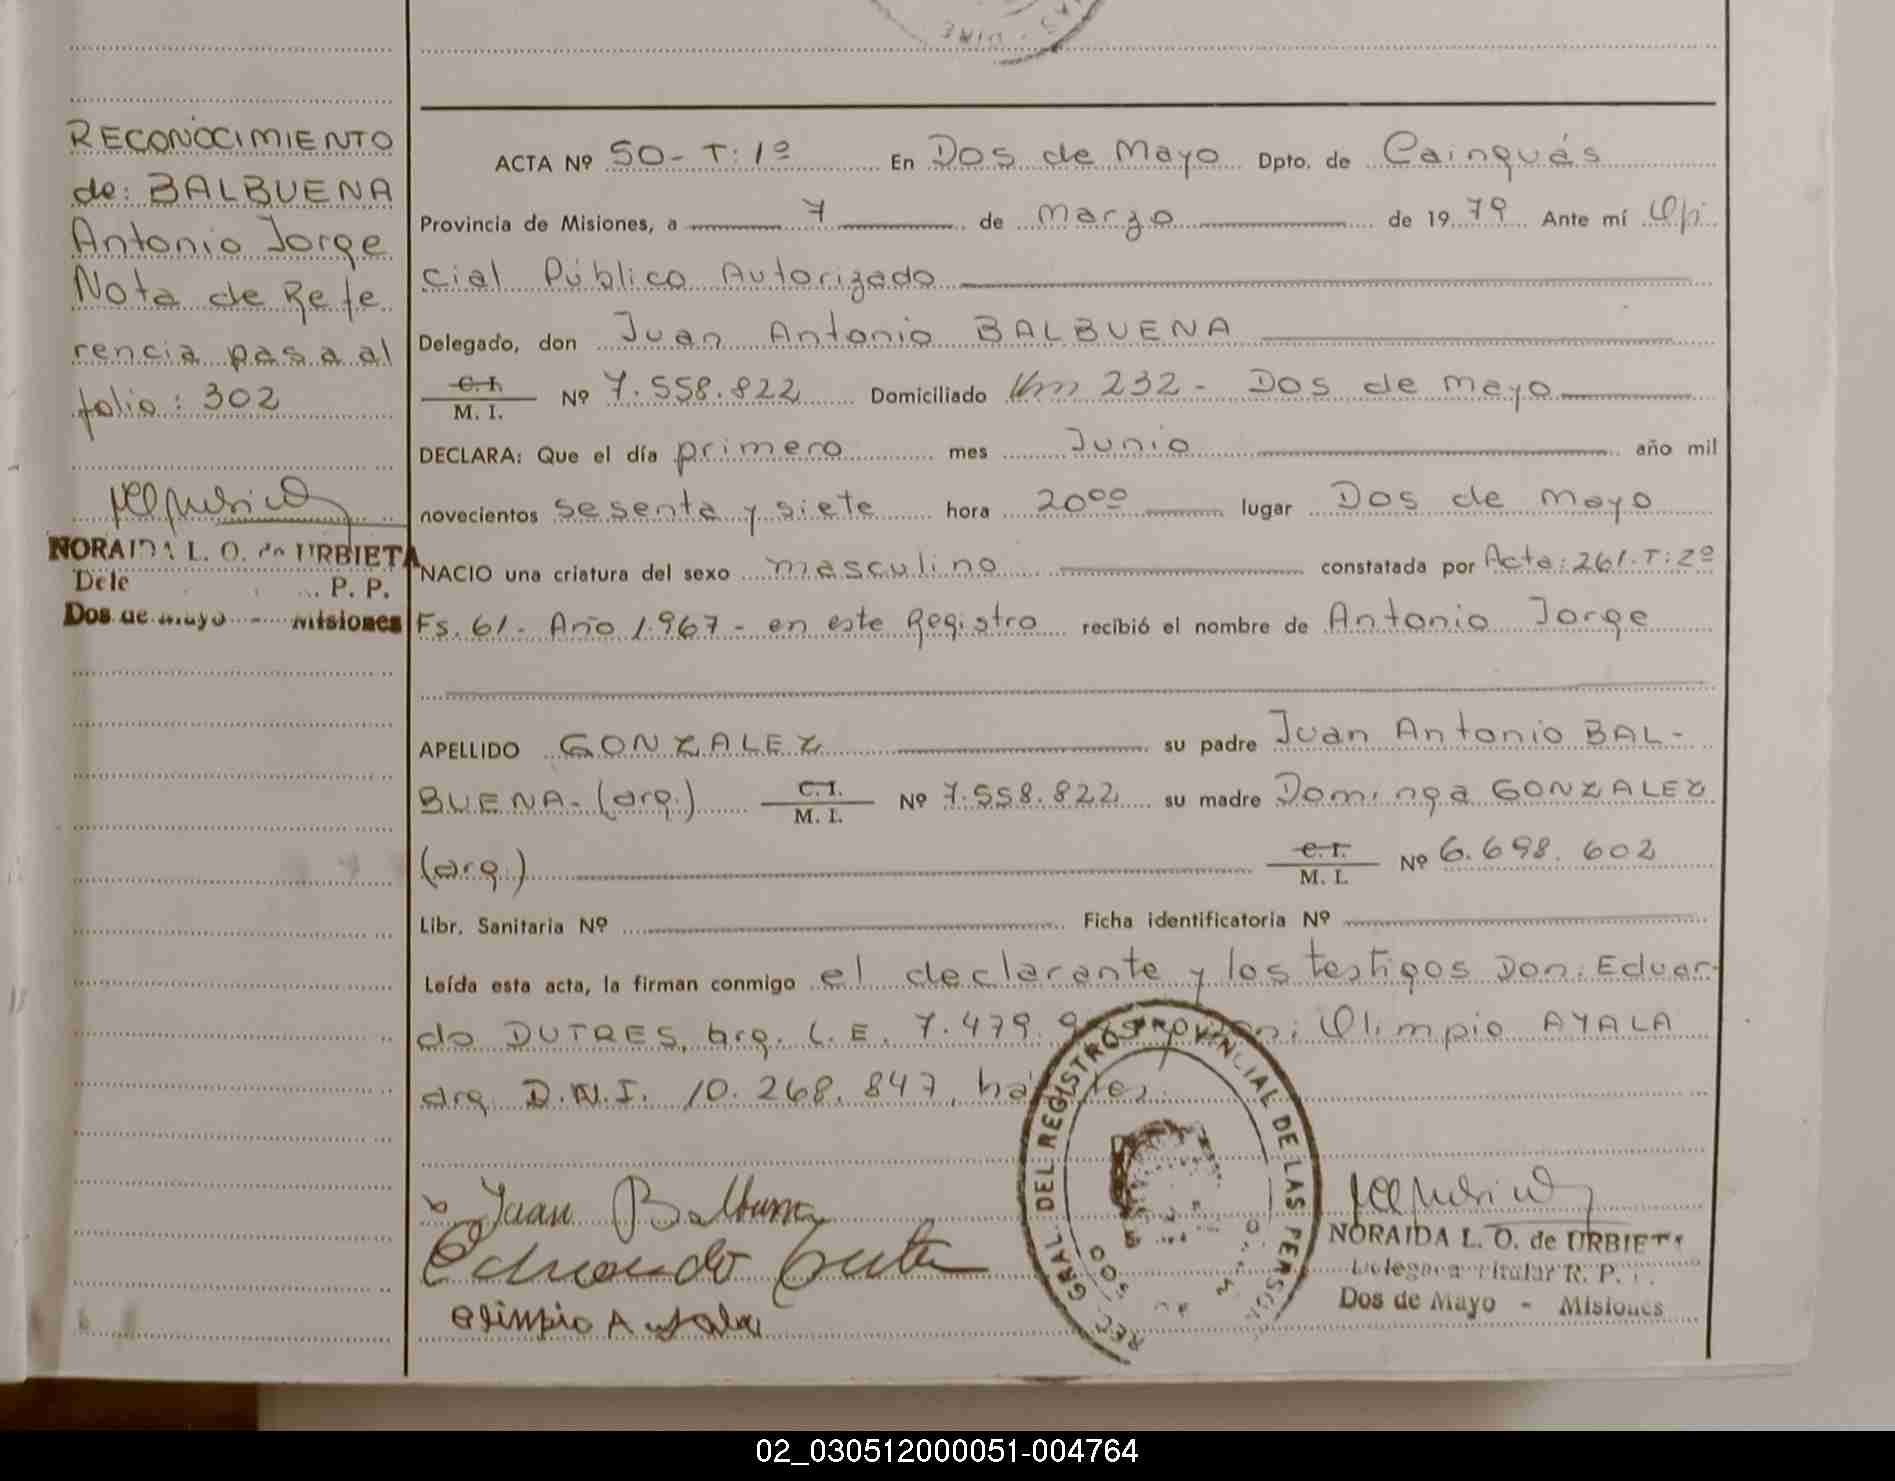 RECONOCIMIENTO
de: BALBUENA
Antonio Jorge
Nota de Refe
rencia pasa al
folio: 302
NORAIDA L. O. de URBIETA
Dele P. P.
Dos de Mayo - Misiones
ACTA Nº 50 - T: 1º En Dos de Mayo Dpto. de Cainguás
Provincia de Misiones, a 7 de Marzo de 19 79 Ante mí Ofi
cial Público Autorizado
Delegado, don Juan Antonio BALBUENA
C. I. / M. I. Nº 7.558.822 Domiciliado Km 232 - Dos de Mayo
DECLARA: Que el día primero mes Junio año mil
novecientos sesenta y siete hora 20⁰⁰ lugar Dos de Mayo
NACIO una criatura del sexo masculino constatada por Acta: 261. T: 2º
Fs. 61 - Año 1.967 - en este Registro recibió el nombre de Antonio Jorge
APELLIDO GONZALEZ su padre Juan Antonio BAL-
BUENA - (arg.) C. I. / M. I. Nº 7.558.822 su madre Dominga GONZALEZ
(arg.) C. I. / M. I. Nº 6.698.602
Libr. Sanitaria Nº Ficha identificatoria Nº
Leída esta acta, la firman conmigo el declarante y los testigos Don: Eduar-
do DUTRES, arg. L.E. 7.479. Olimpio AYALA
arg. D.N.I. 10.268.847,
Juan Balbuena
Eduardo
Olimpio Ayala
REG. GRAL. DEL REGISTRO PROVINCIAL DE LAS PERSON
NORAIDA L. O. de URBIETA
Delegada Titular R. P.
Dos de Mayo - Misiones
02_030512000051-004764